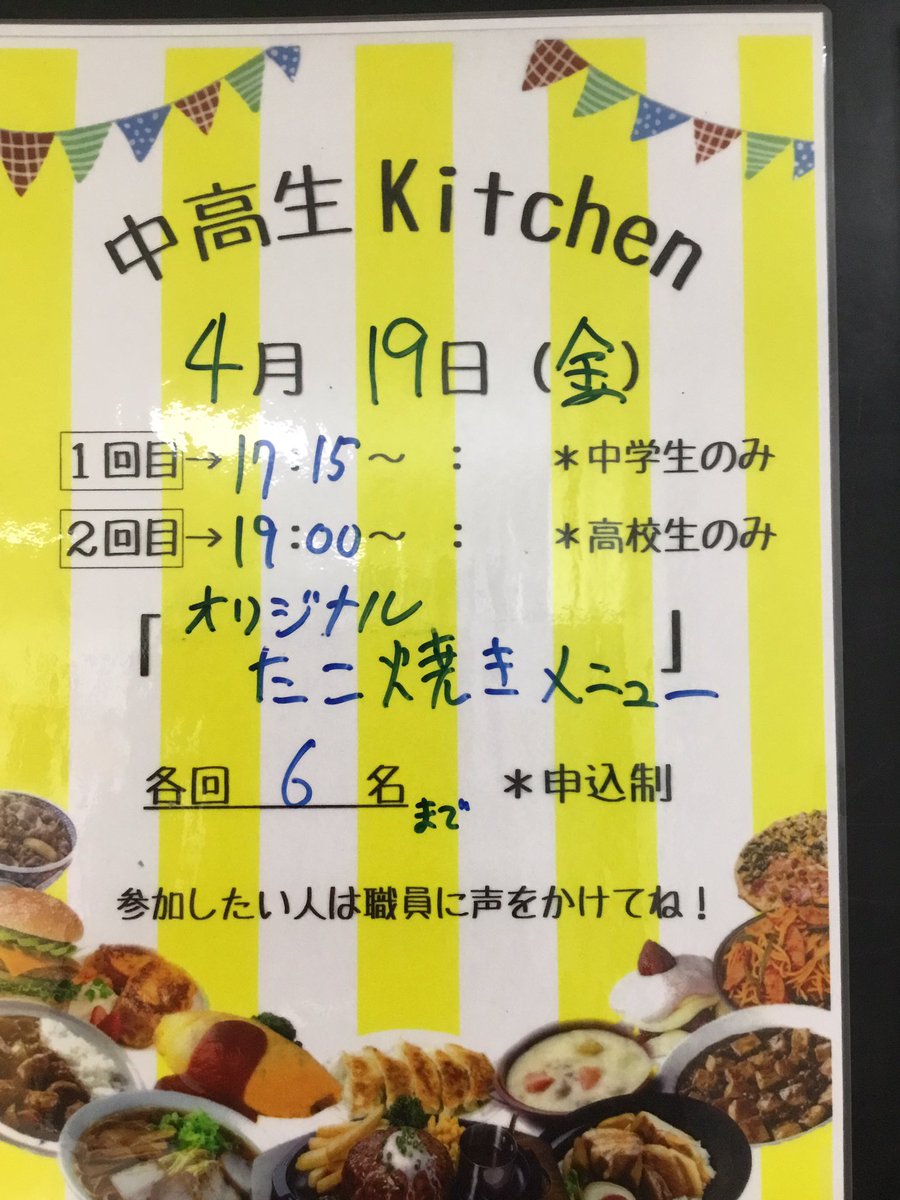 中高生Kitchen
4月 19日(金)
1回目→17:15～ : *中学生のみ
2回目→19:00～ : *高校生のみ
「オリジナル
たこ焼きメニュー」
各回 6 名まで *申込制
参加したい人は職員に声をかけてね！